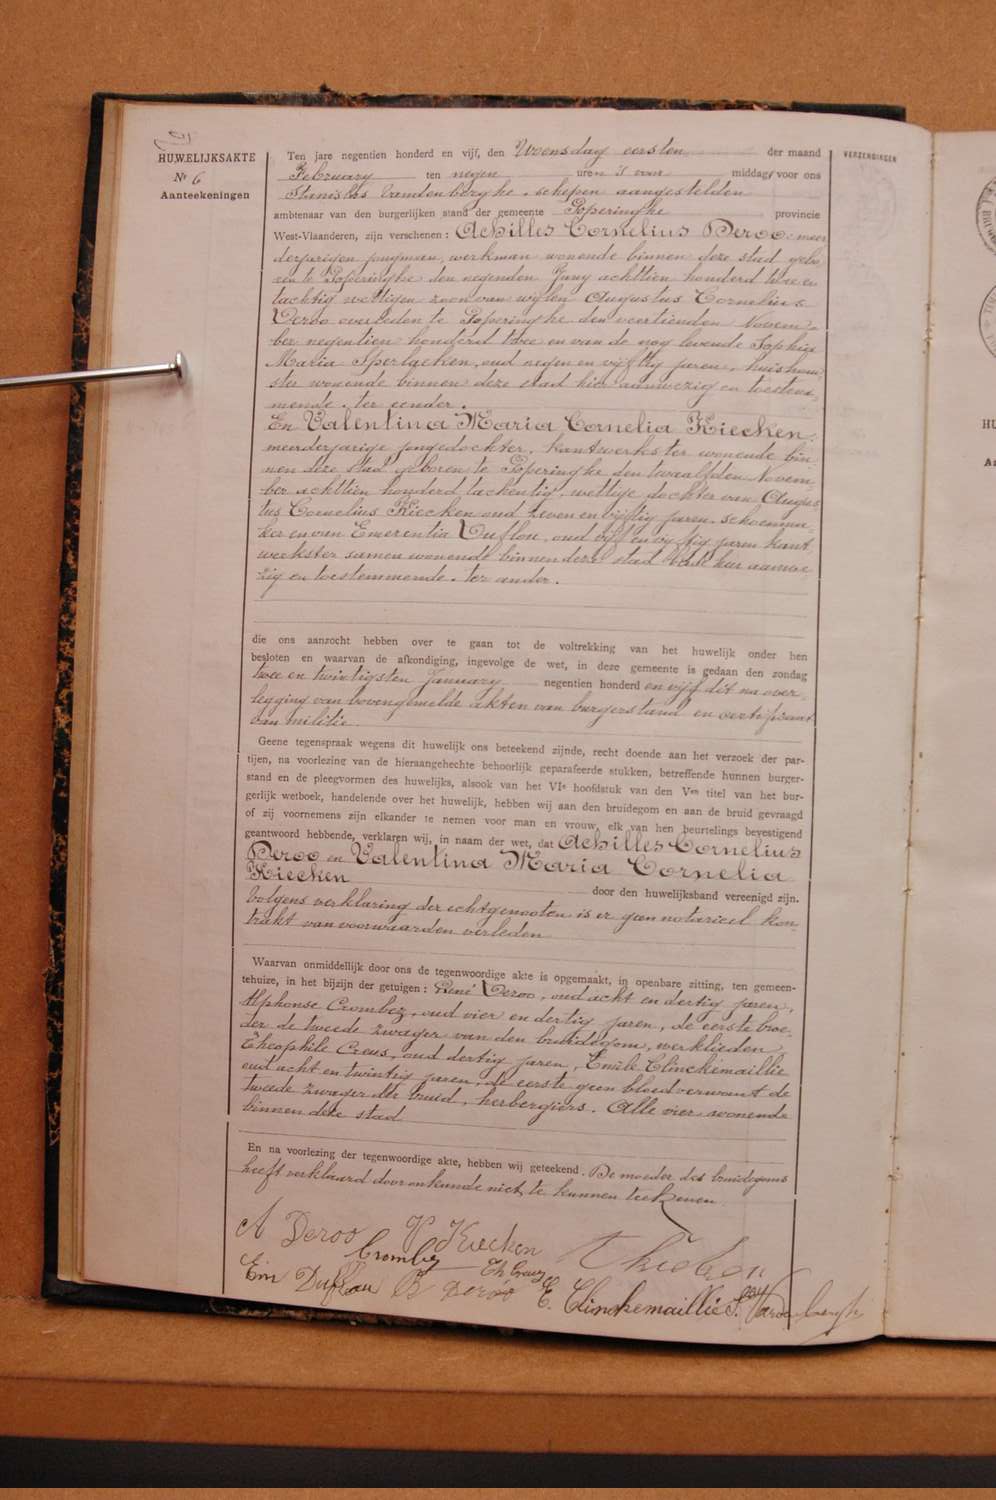 HUWELIJKSAKTE
Nr 6
Aanteekeningen
VERZENDINGEN
Ten jare negentien honderd en vijf, den Woensdag eersten der maand
February ten negen uren 's voor middag voor ons
Stanislas Vandenberghe schepen aangestelden
ambtenaar van den burgerlijken stand der gemeente Poperinghe provincie
West-Vlaanderen, zijn verschenen : Achilles Cornelius Deroo meer
derjarigen jongman, werkman wonende binnen deze stad gebo
ren te Poperinghe den negenden Juny achttien honderd twee en
tachtig wettigen zoon van wijlen Augustus Cornelius
Deroo overleden te Poperinghe den veertienden Novem-
ber negentien honderd twee en van de nog levende Sophia
Maria Sperlaeken, oud negen en vijftig jaren, huishou-
ster wonende binnen deze stad hier aanwezig en toestem-
mende. ter eender.
En Valentina Maria Cornelia Kiecken
meerderjarige jongedochter, kantwerkster wonende bin-
nen deze stad geboren te Poperinghe den twaalfden Novem-
ber achttien honderd tachentig, wettige dochter van Augus-
tus Cornelius Kiecken oud zeven en vijftig jaren, schoenma-
ker en van Emerentia Duflou, oud vijf en vijftig jaren kant
werkster samen wonende binnen deze stad hier aanwe-
zig en toestemmende. ter ander.
die ons aanzocht hebben over te gaan tot de voltrekking van het huwelijk onder hen
besloten en waarvan de afkondiging, ingevolge de wet, in deze gemeente is gedaan den zondag
twee en twintigsten January negentien honderd en vijf dit na over
legging van bovengemelde akten van burgerstand en certificaat
van militie
Geene tegenspraak wegens dit huwelijk ons beteekend zijnde, recht doende aan het verzoek der par-
tijen, na voorlezing van de hieraangehechte behoorlijk geparafeerde stukken, betreffende hunnen burger-
stand en de pleegvormen des huwelijks, alsook van het VIe hoofdstuk van den Ven titel van het bur-
gerlijk wetboek, handelende over het huwelijk, hebben wij aan den bruidegom en aan de bruid gevraagd
of zij voornemens zijn elkander te nemen voor man en vrouw, elk van hen beurtelings bevestigend
geantwoord hebbende, verklaren wij, in naam der wet, dat Achilles Cornelius
Deroo en Valentina Maria Cornelia
Kiecken door den huwelijksband vereenigd zijn.
Volgens verklaring der echtgenooten is er geen notarieel kon-
trakt van voorwaarden verleden
Waarvan onmiddellijk door ons de tegenwoordige akte is opgemaakt, in openbare zitting, ten gemeen-
tehuize, in het bijzijn der getuigen : René Deroo, oud acht en dertig jaren,
Alphonse Crombez, oud vier en dertig jaren, de eerste broe-
der de tweede zwager van den bruidegom, werklieden
Theophile Creus, oud dertig jaren, Emile Clinckemaillie
oud acht en twintig jaren, de eerste geen bloedverwant de
tweede zwager der bruid, herbergiers. Alle vier wonende
binnen deze stad
En na voorlezing der tegenwoordige akte, hebben wij geteekend. De moeder des bruidegoms
heeft verklaard door onkunde niet te kunnen teekenen
A Deroo V Kiecken
Crombez Th Creus
Em Duflou R Deroo E. Clinckemaillie S. Vandenberghe
HU